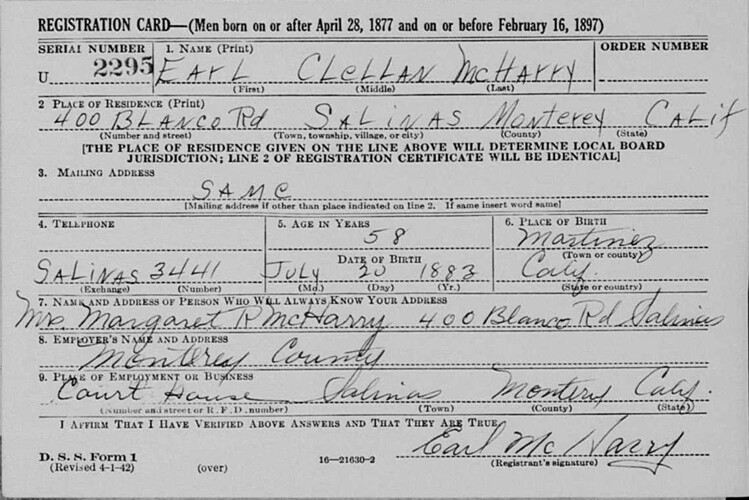 REGISTRATION CARD—(Men born on or after April 28, 1877 and on or before February 16, 1897)
SERIAL NUMBER 1. NAME (Print) ORDER NUMBER
U 2295 EARL CLELLAN McHARRY
(First) (Middle) (Last)
2 PLACE OF RESIDENCE (Print)
400 BLANCO Rd SALINAS Monterey CALIF
(Number and street) (Town, township, village, or city) (County) (State)
[THE PLACE OF RESIDENCE GIVEN ON THE LINE ABOVE WILL DETERMINE LOCAL BOARD
JURISDICTION; LINE 2 OF REGISTRATION CERTIFICATE WILL BE IDENTICAL]
3. MAILING ADDRESS
SAME
[Mailing address if other than place indicated on line 2. If same insert word same]
4. TELEPHONE 5. AGE IN YEARS 6. PLACE OF BIRTH
58 Martinez
DATE OF BIRTH (Town or county)
SALINAS 3441 July 20 1883 Calif.
(Exchange) (Number) (Mo.) (Day) (Yr.) (State or country)
7. NAME AND ADDRESS OF PERSON WHO WILL ALWAYS KNOW YOUR ADDRESS
Mrs. Margaret R McHarry 400 Blanco Rd Salinas
8. EMPLOYER'S NAME AND ADDRESS
Monterey County
9. PLACE OF EMPLOYMENT OR BUSINESS
Court House Salinas Montery Calif.
(Number and street or R. F. D. number) (Town) (County) (State)
I AFFIRM THAT I HAVE VERIFIED ABOVE ANSWERS AND THAT THEY ARE TRUE.
Earl McHarry
D. S. S. Form 1
(Revised 4-1-42) (over) 16—21630-2 (Registrant's signature)